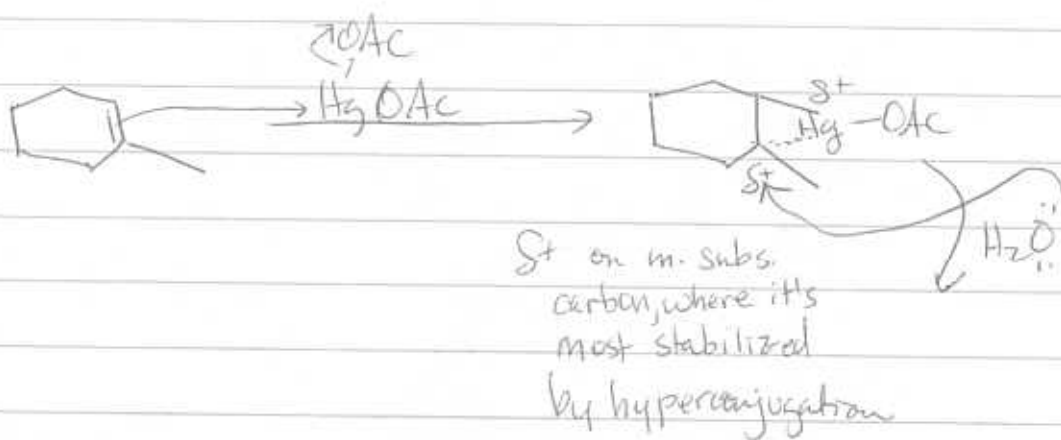 OAc
Hg OAc
δ+
Hg -OAc
δ+
H₂O
δ+ on m. subs.
carbon, where it's
most stabilized
by hyperconjugation